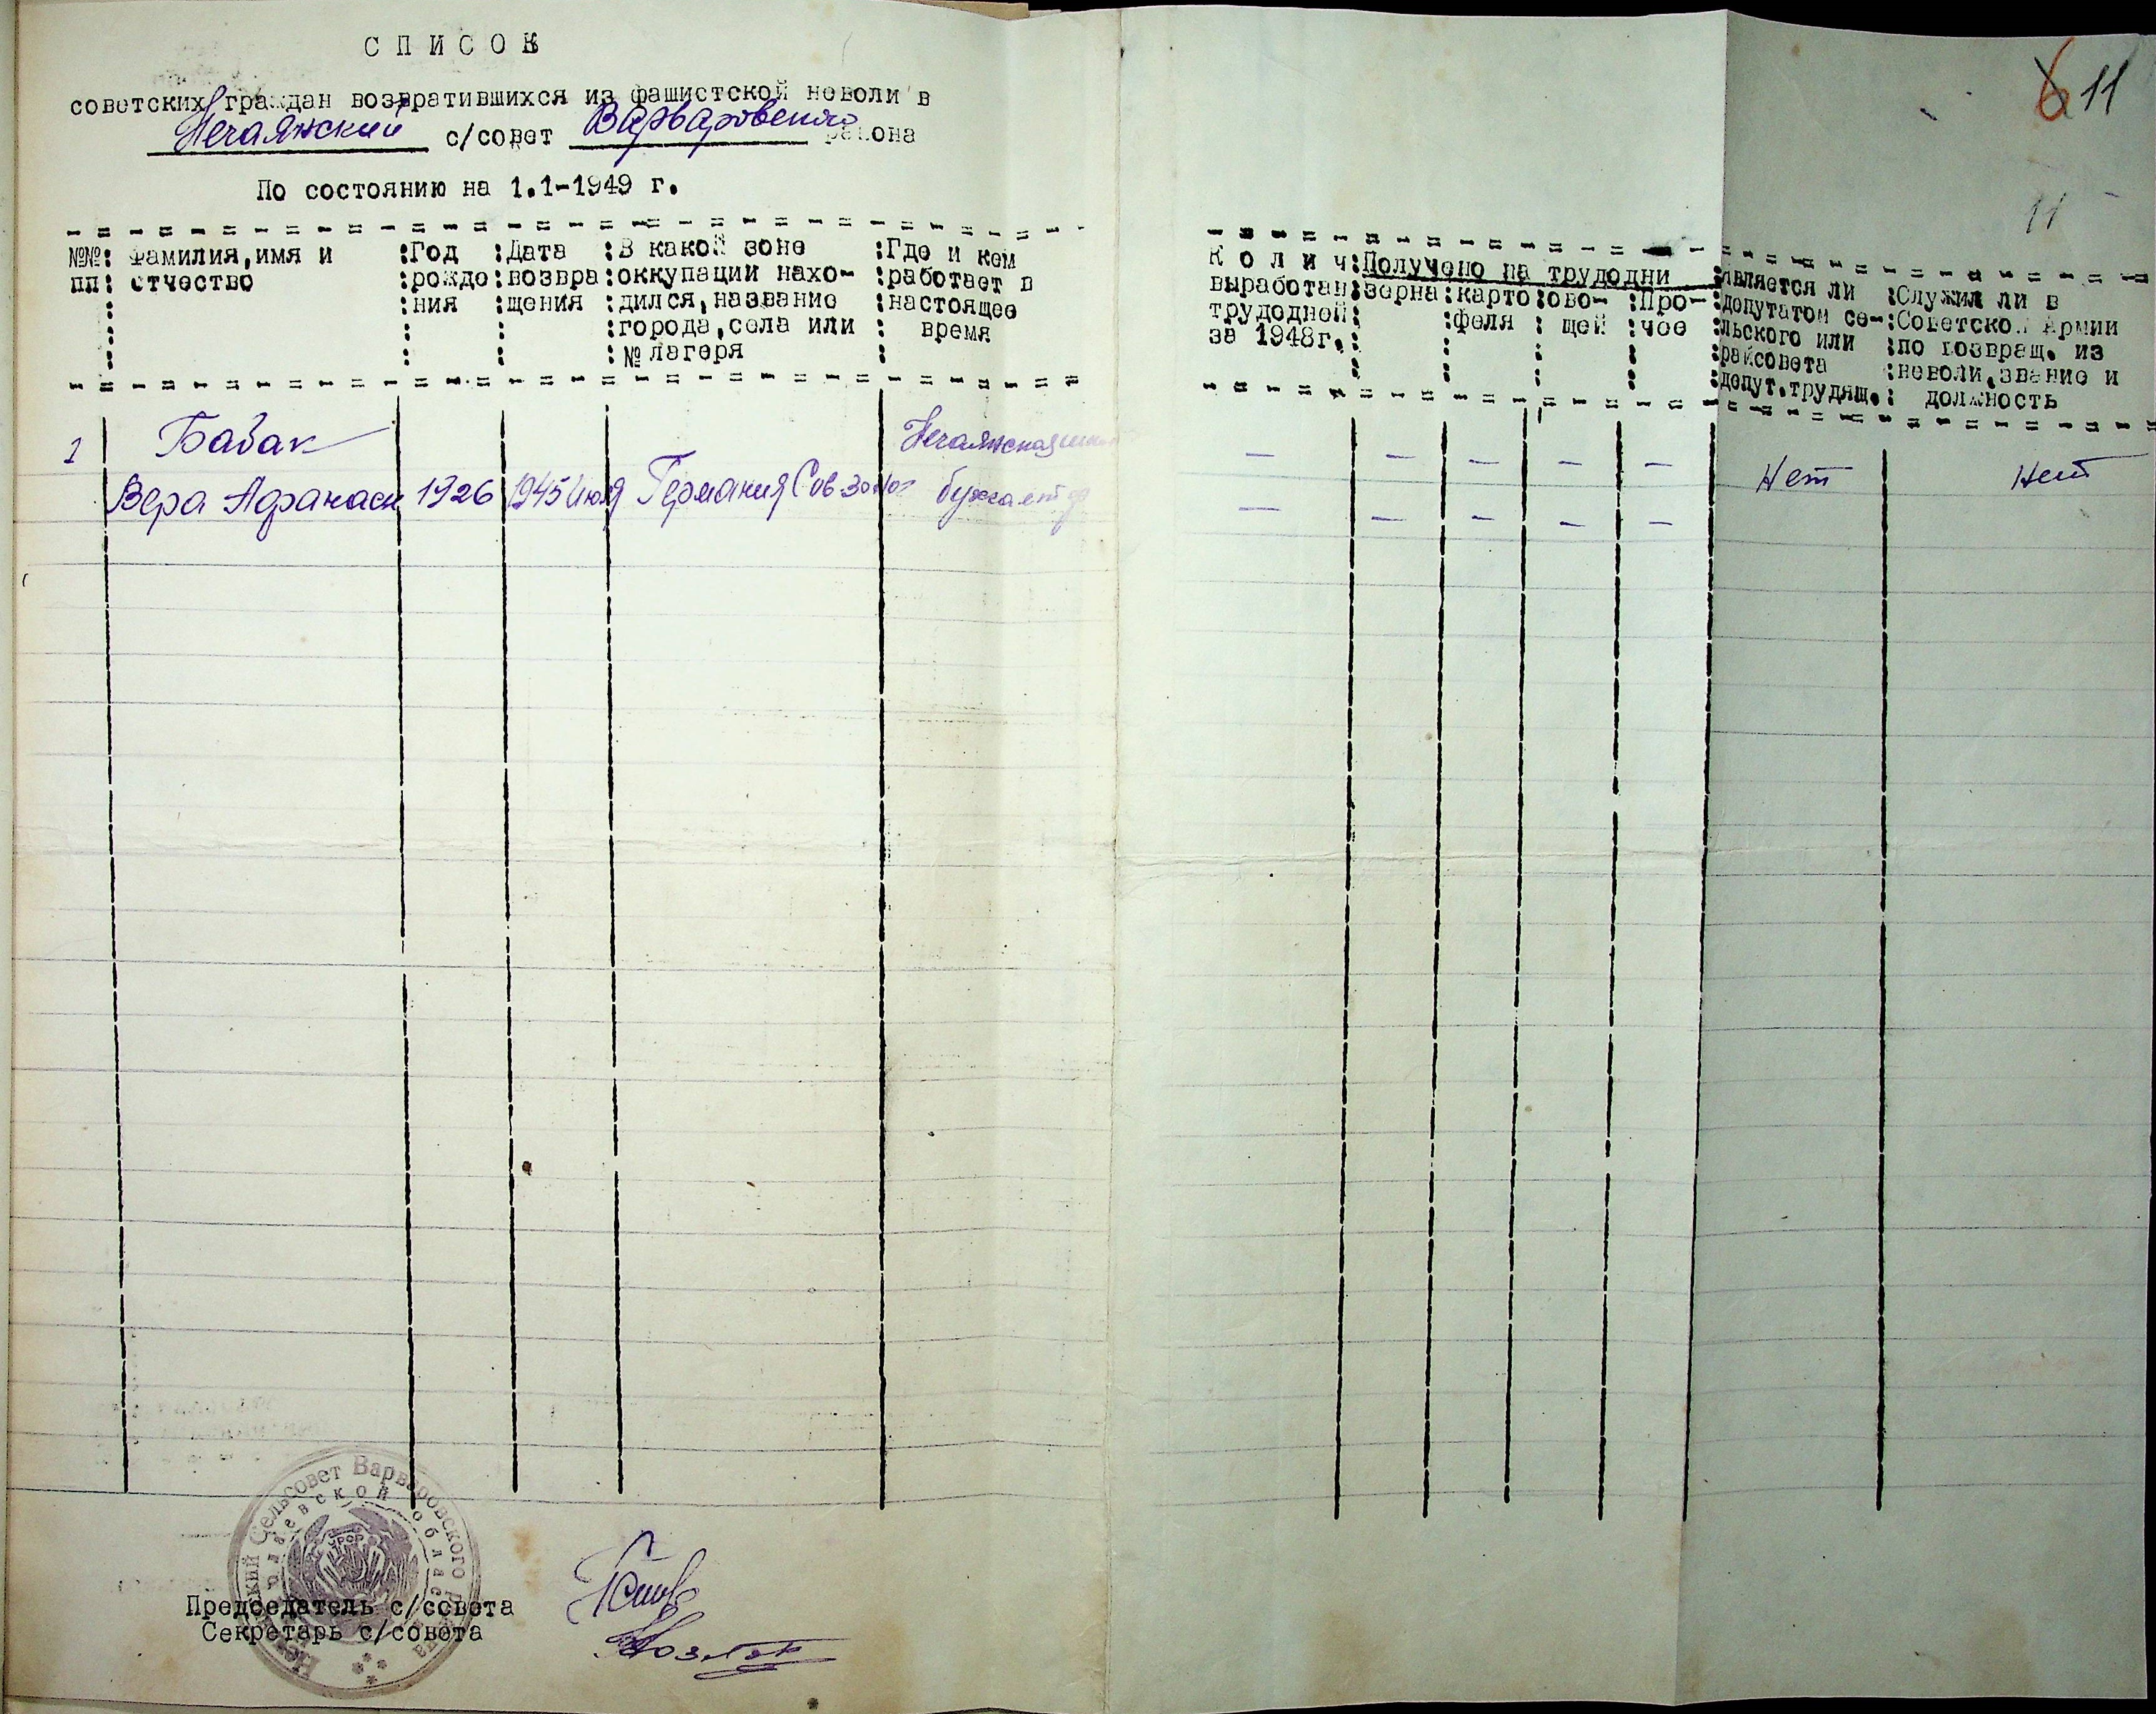 СПИСОК
советских граждан возвратившихся из фашистской неволи в
Нечаянский с/совет Варваровского района
По состоянию на 1.1-1949 г.
№№ пп : Фамилия,имя и отчество : Год рожде ния : Дата возвра щения : В какой зоне оккупации нахо- дился,название города,села или № лагеря : Где и кем работает в настоящее время
К о л и ч выработан трудодней за 1948г. : Получено на трудодни : зерна : карто феля : ово- щей : Про- чее : является ли депутатом се- льского или райсовета депут.трудящ. : Служил ли в Советской Армии по возвращ. из неволи,звание и должность
6 11
11
1 Бабак Нечаянская — — — — —
Вера Афанаси 1926 1945 Июля Германия Сов Зона бухгалтер — — — — — Нет Нет
Сельсовет Варваровского
Председатель с/совета
Секретарь с/совета